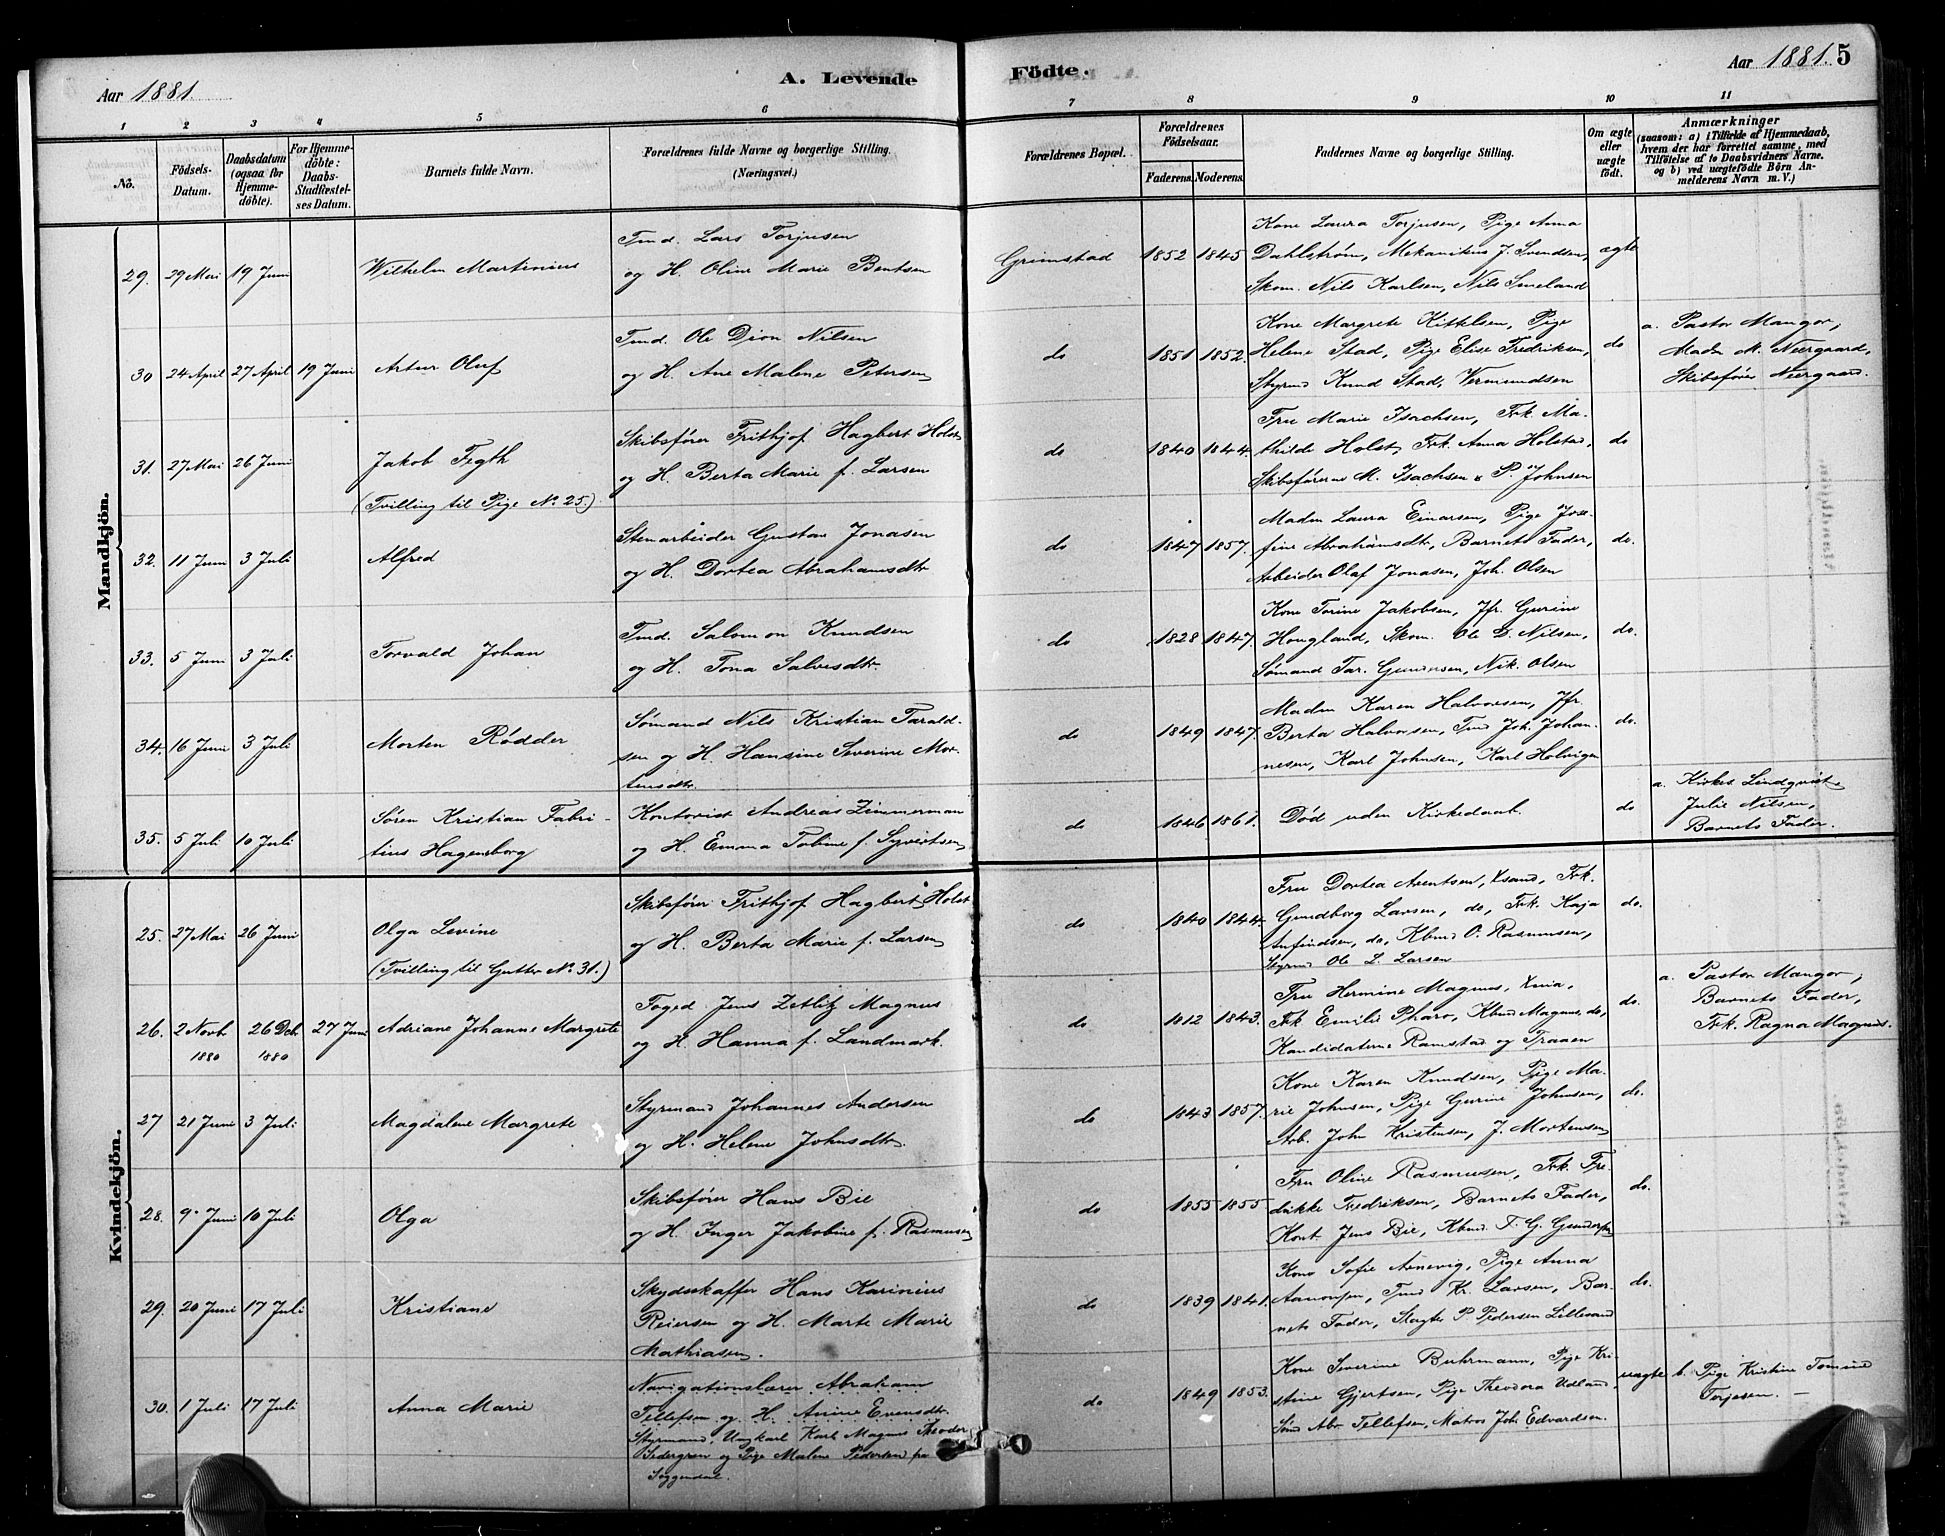 Aar 1881.
A. Levende
Födte.
Aar 1881. 5
1 2 3 4 5 6 7 8 9 10 11
No.
Födsels-Datum.
Daabsdatum (ogsaa for Hjemmedöbte).
For Hjemmedöbte: Daabs-Stadfæstelses Datum.
Barnets fulde Navn.
Forældrenes fulde Navne og borgerlige Stilling.
(Næringsvei.)
Forældrenes Bopæl.
Forældrenes Födselsaar.
Faderens. Moderens.
Faddernes Navne og borgerlige Stilling.
Om ægte eller uægte födt.
Anmærkninger
(saasom: a) i Tilfælde af Hjemmedaab,
hvem der har forrettet samme, med
Tilföielse af to Daabsvidners Navne,
og b) ved uægtefödte Börn Anmelderens Navn m. V.)
Mandkjön.
29. 29 Mai 19 Juni Wilhelm Martinius
Tmd. Lars Torjusen
og H. Oline Marie Bentsen
Grimstad 1852 1845
Kone Laura Torjusen, Pige Anna
Dahlstrøm, Mekanikus J. Svendsen,
Skom. Nils Karlsen, Nils Smeland
ægte
30 24 April 27 April 19 Juni Artur Oluf
Tmd. Ole Dion Nilsen
og H. Ane Malene Petersen
do 1851 1852.
Kone Margrete Kittelsen, Pige
Helene Stad, Pige Elise Fredriksen,
Styrmd Knud Stad, Vermundsen
do
a. Pastor Mangor,
Madm M. Neergaard,
Skibsfører Neergaard.
31. 27 Mai 26 Juni Jakob Fegth
(Tvilling til Pige No. 25.)
Skibsfører Frithjof Hagbert Holst
og H. Berta Marie f. Larsen
do 1840 1844.
Fru Marie Isachsen, Frk. Ma-
thilde Holst, Frk. Anna Holstad,
Skibsførerne M. Isachsen & P. Johnsen
do
32. 11 Juni 3 Juli Alfred
Stenarbeider Gustav Jonasen
og H. Dortea Abrahamsdtr
do 1847 1857.
Madm Laura Einarsen, Pige Jose-
fine Abrahamsdtr, Barnets Fader,
Arbeider Olaf Jonasen, Joh. Olsen
do.
33. 5 Juni 3 Juli Torvald Johan
Tmd. Salomon Knudsen
og H. Tona Salvesdtr
do 1828 1847.
Kone Torine Jakobsen, Jfr. Gurine
Hougland, Skom. Ole D. Nilsen,
Sømand Tar. Gundersen, Nik. Olsen
do.
34. 16 Juni 3 Juli Morten Rødder
Sømand Nils Kristian Tarald-
sen og H. Hansine Severine Mor-
tensdtr.
do 1849 1847.
Madm Karen Halvorsen, Jfr.
Berta Halvorsen, Tmd Joh. Johan-
nesen, Karl Johnsen, Karl Holvigen
do.
35. 5 Juli 10 Juli Søren Kristian Fabri-
tius Hagensborg
Kontorist Andreas Zimmerman
og H. Emma Tobine f. Syvertsen
do 1846 1861.
Død uden Kirkedaab.
do
a. Kirkes. Lindqvist,
Julie Nilsen,
Barnets Fader.
Kvindekjön.
25. 27 Mai 26 Juni Olga Levine
(Tvilling til Gutten No. 31.)
Skibsfører Frithjof Hagbert Holst
og H. Berta Marie f. Larsen
do 1840 1844.
Fru Dortea Arentsen, Xsand, Frk.
Gundborg Larsen, do, Frk. Kaja
Anfindsen, do, Kbmd O. Rasmusen,
Styrmd Ole L. Larsen
do.
26. 2 Novb 1880 26 Deb 1880 27 Juni Adriane Johanne Margrete
Foged Jens Zetlitz Magnus
og H. Hanna f. Landmark.
do 1812 1843.
Fru Hermine Magnus, Xnia,
Frk Emilie Pharo, Kbmd Magnus, do,
Kandidaterne Ramstad og Traaen
do.
a. Pastor Mangor,
Barnets Fader,
Frk. Ragna Magnus.
27 21 Juni 3 Juli Magdalene Margrete
Styrmand Johannes Andersen
og H. Helene Johnsdtr.
do 1843 1857.
Kone Karen Knudsen, Pige Ma-
rie Johnsen, Pige Gurine Johnsen,
Arb. John Kristensen, J. Mortensen
do.
28. 9. Juni 10 Juli Olga
Skibsfører Hans Bie
og H. Inger Jakobine f. Rasmusen
do 1855 1855
Fru Oline Rasmusen, Frk. Fre-
dikke Fredriksen, Barnets Fader,
Kont. Jens Bie, Kbmd. T. G. Gundersen
do.
29. 20 Juni 17 Juli Kristiane
Skydsskaffer Hans Karinius
Reiersen og H. Marte Marie
Mathiasen.
do 1839 1841.
Kone Sofie Arnevig, Pige Anna
Aanonsen, Tmd Kr. Larsen, Bar-
nets Fader, Slagter P. Pedersen Lillesand
do.
30. 1 Juli 17 Juli Anna Marie
Navigationslærer Abraham
Tellefsen og H. Anine Evensdtr.
Styrmand, Ungkarl Karl Magnus Theodor
Sedergren og Pige Malene Pedersen fra
Soggendal.
do 1849 1853.
Kone Severine Buhrmann, Pige Kri-
stine Gjertsen, Pige Theodora Udland,
Smd Abr Tellefsen, Matros Joh Edvardsen.
uægte
b. Pige Kristine Tomine
Torjesen. —